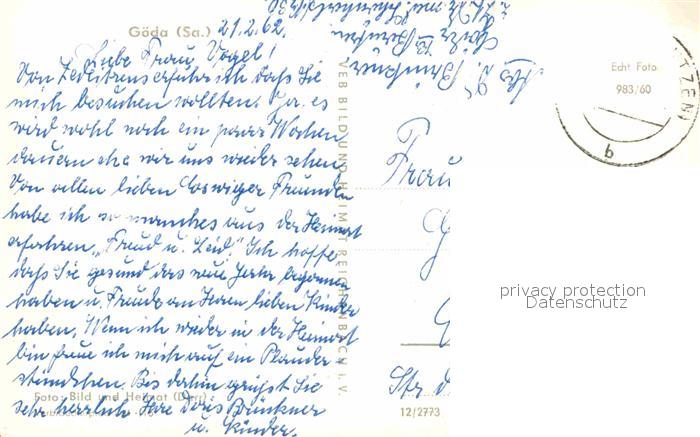 Göda (Sa.) 21.2.62.
Liebe Frau Vogel!
Von erfuhr ich dass Sie
mich besuchen wollten. Ja es
wird wohl noch ein paar Wochen
dauern ehe wir uns wieder sehen
Von allen lieben Coswiger Freunden
habe ich so manches aus der Heimat
erfahren, "Freud u. Leid." Ich hoffe
dass Sie gesund das neue Jahr begonnen
haben u. Freude an Ihren lieben Kinder
haben. Wenn ich wieder in der Heimat
bin freue ich mich auf ein Plauder
stündchen. Bis dahin grüsst Sie
sehr herzlich Ihre Doris Brückner
u. Kinder.
Foto: Bild und Heimat (Darr)
VEB BILD UND HEIMAT REICHENBACH i. V.
Brückner
Frau
G
Str d
12/2773
Echt Foto
983/60
TZEN
b
privacy protection
Datenschutz